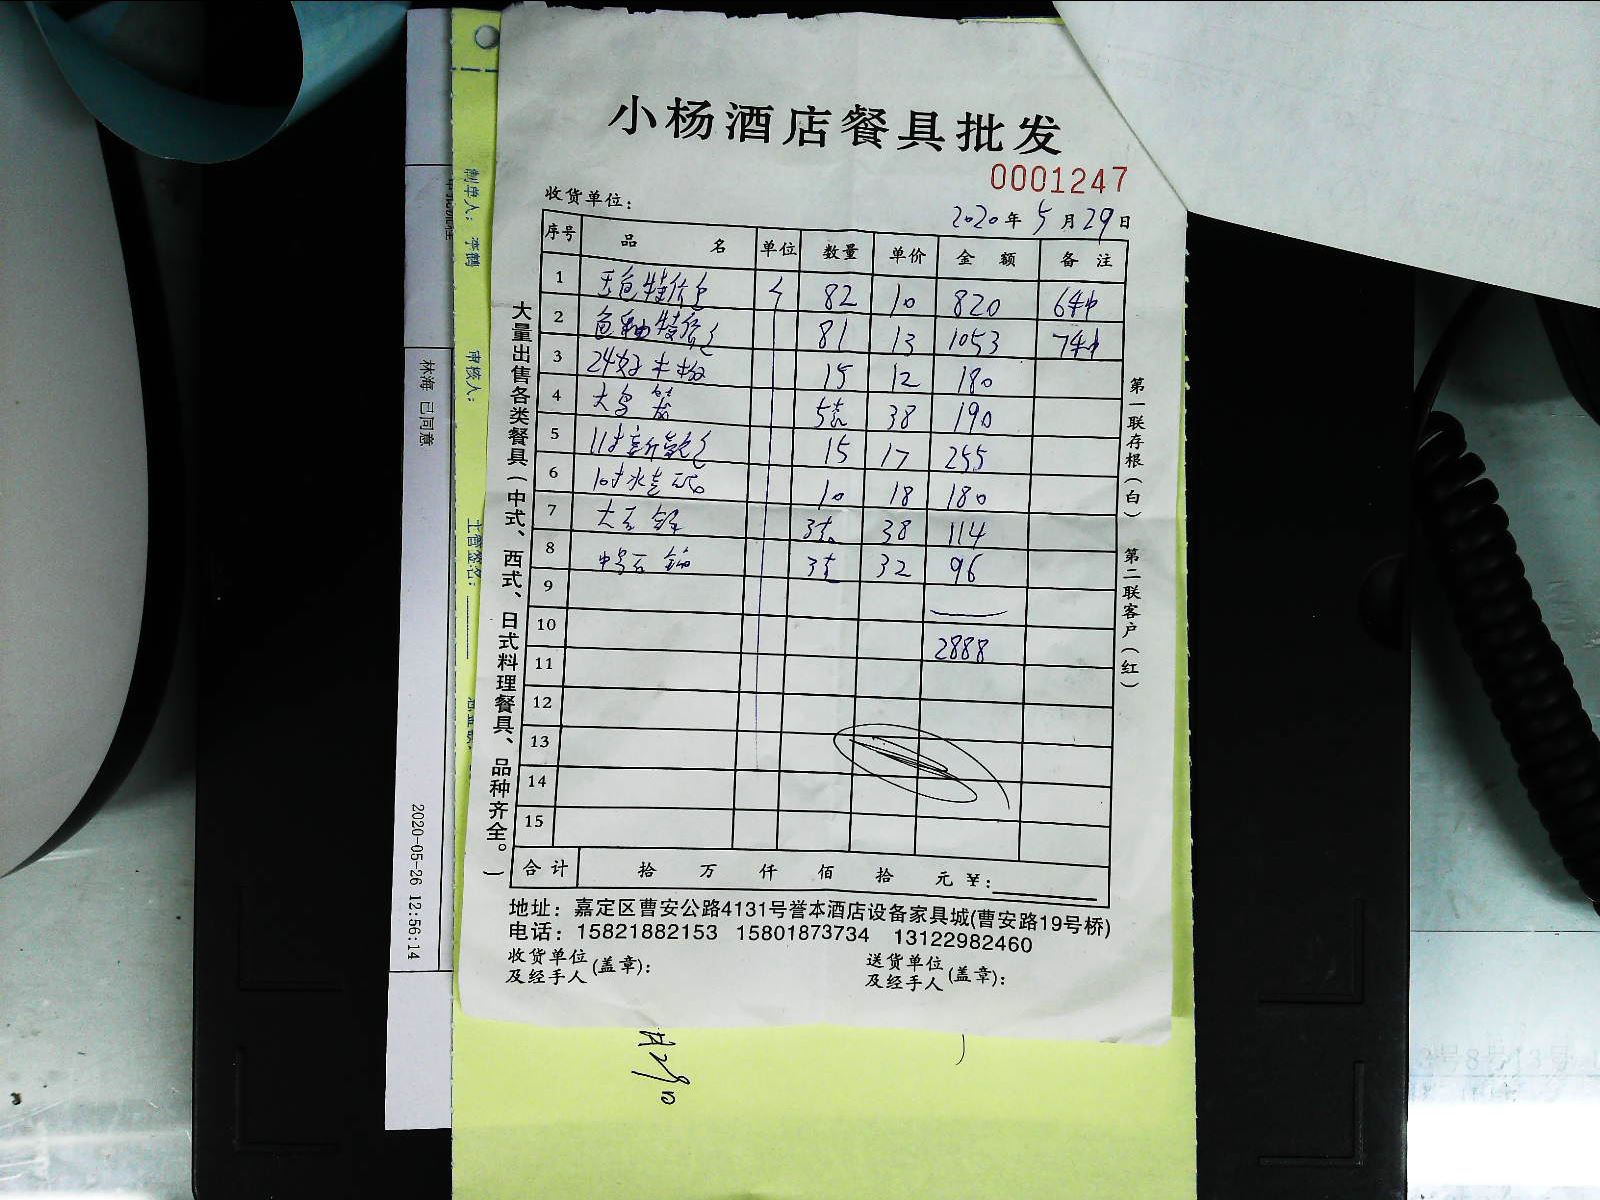 小杨酒店餐具批发
0001247
收货单位：
2020年5月29日
序号 品名 单位 数量 单价 金额 备注
1 个 82 10 820 6种
2 81 13 1053 7种
3 15 12 180
4 5套 38 190
5 15 17 255
6 10 18 180
7 3套 38 114
8 3套 32 96
9
10 2888
11
12
13
14
15
合计 拾 万 仟 佰 拾 元 ¥：
地址：嘉定区曹安公路4131号誉本酒店设备家具城(曹安路19号桥)
电话：15821882153 15801873734 13122982460
收货单位及经手人(盖章)：
送货单位及经手人(盖章)：
大量出售各类餐具（中式、西式、日式料理餐具、品种齐全。）
第一联存根（白） 第二联客户（红）
制单人：李鹤
审核人：
主管签名：
林海 已同意
2020-05-26 12:56:14